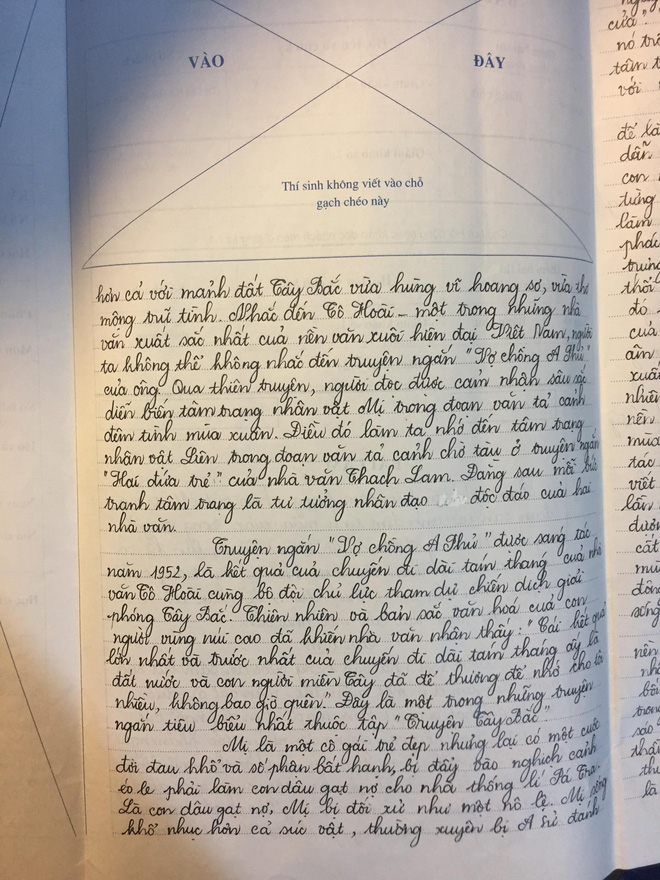 VÀO ĐÂY
Thí sinh không viết vào chỗ
gạch chéo này
hơn cả với mảnh đất Tây Bắc vừa hùng vĩ hoang sơ, vừa thơ
mộng trữ tình. Nhắc đến Tô Hoài – một trong những nhà
văn xuất sắc nhất của nền văn xuôi hiện đại Việt Nam, người
ta không thể không nhắc đến truyện ngắn "Vợ chồng A Phủ"
của ông. Qua thiên truyện, người đọc được cảm nhận sâu sắc
diễn biến tâm trạng nhân vật Mị trong đoạn văn tả cảnh
đêm tình mùa xuân. Điều đó làm ta nhớ đến tâm trạng
nhân vật Liên trong đoạn văn tả cảnh chờ tàu ở truyện ngắn
"Hai đứa trẻ" của nhà văn Thạch Lam. Đằng sau mỗi bức
tranh tâm trạng là tư tưởng nhân đạo độc đáo của hai
nhà văn.
Truyện ngắn "Vợ chồng A Phủ" được sáng tác
năm 1952, là kết quả của chuyến đi dài tám tháng của nhà
văn Tô Hoài cùng bộ đội chủ lực tham dự chiến dịch giải
phóng Tây Bắc. Thiên nhiên và bản sắc văn hoá của con
người vùng núi cao đã khiến nhà văn nhận thấy: "Cái kết quả
lớn nhất và trước nhất của chuyến đi dài tám tháng ấy là
đất nước và con người miền Tây đã để thương để nhớ cho tôi
nhiều, không bao giờ quên." Đây là một trong những truyện
ngắn tiêu biểu nhất thuộc tập "Truyện Tây Bắc".
Mị là một cô gái trẻ đẹp nhưng lại có một cuộc
đời đau khổ và số phận bất hạnh, bị đẩy vào nghịch cảnh
éo le phải làm con dâu gạt nợ cho nhà thống lí Pá Tra.
Là con dâu gạt nợ, Mị bị đối xử như một nô lệ. Mị sống
khổ nhục hơn cả súc vật, thường xuyên bị A Sử đánh